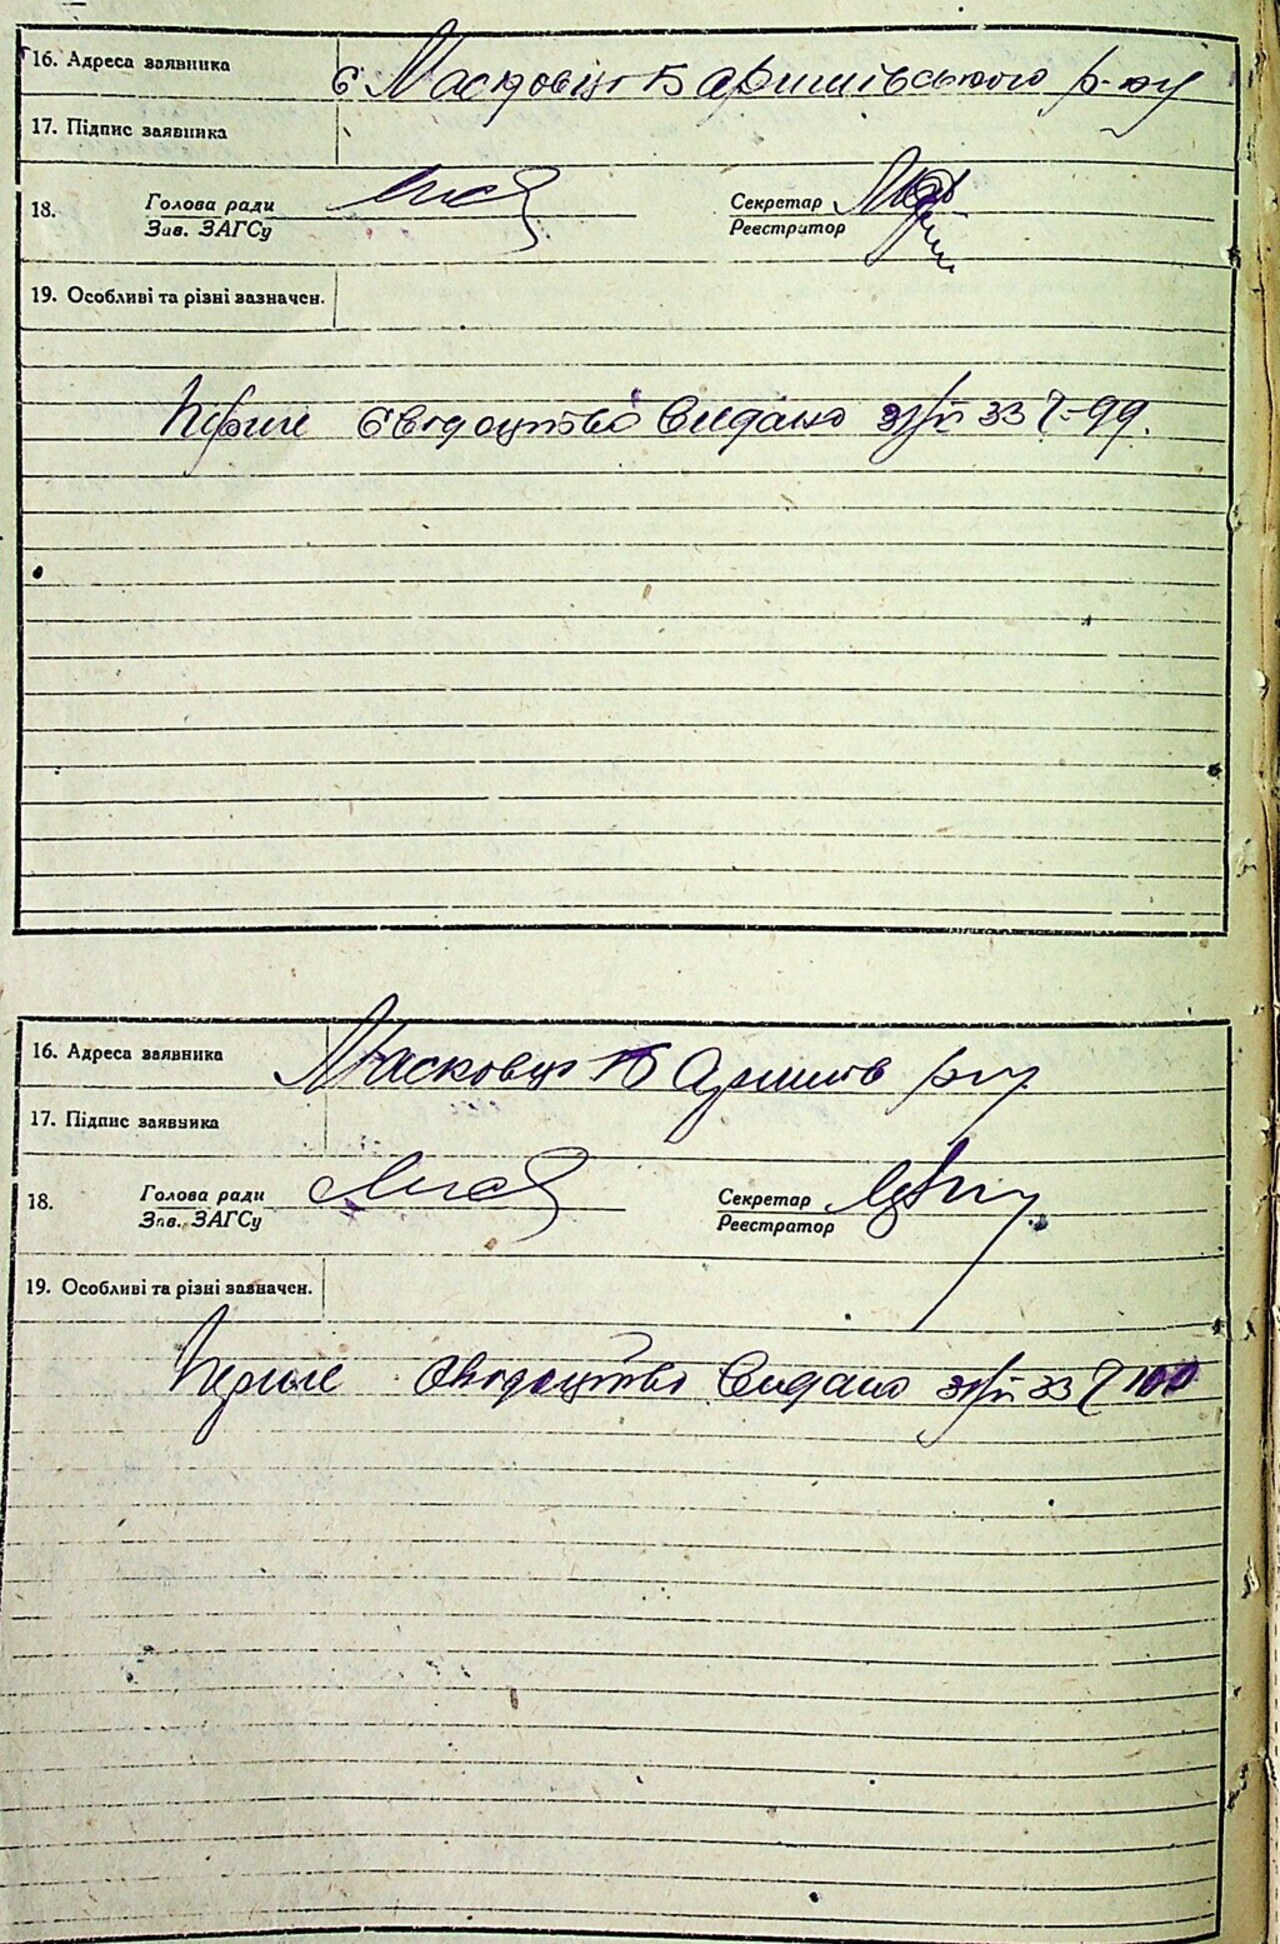 16. Адреса заявника с Масковці Баришівського р-ну
17. Підпис заявника
18. Голова ради Секретар
Зав. ЗАГСу Реєстратор
19. Особливі та різні зазначен.
Перше свідоцтво видано 33 99.
16. Адреса заявника Масковці Баришів р-ну
17. Підпис заявника
18. Голова ради Секретар
Зав. ЗАГСу Реєстратор
19. Особливі та різні зазначен.
Перше свідоцтво видано 33 100